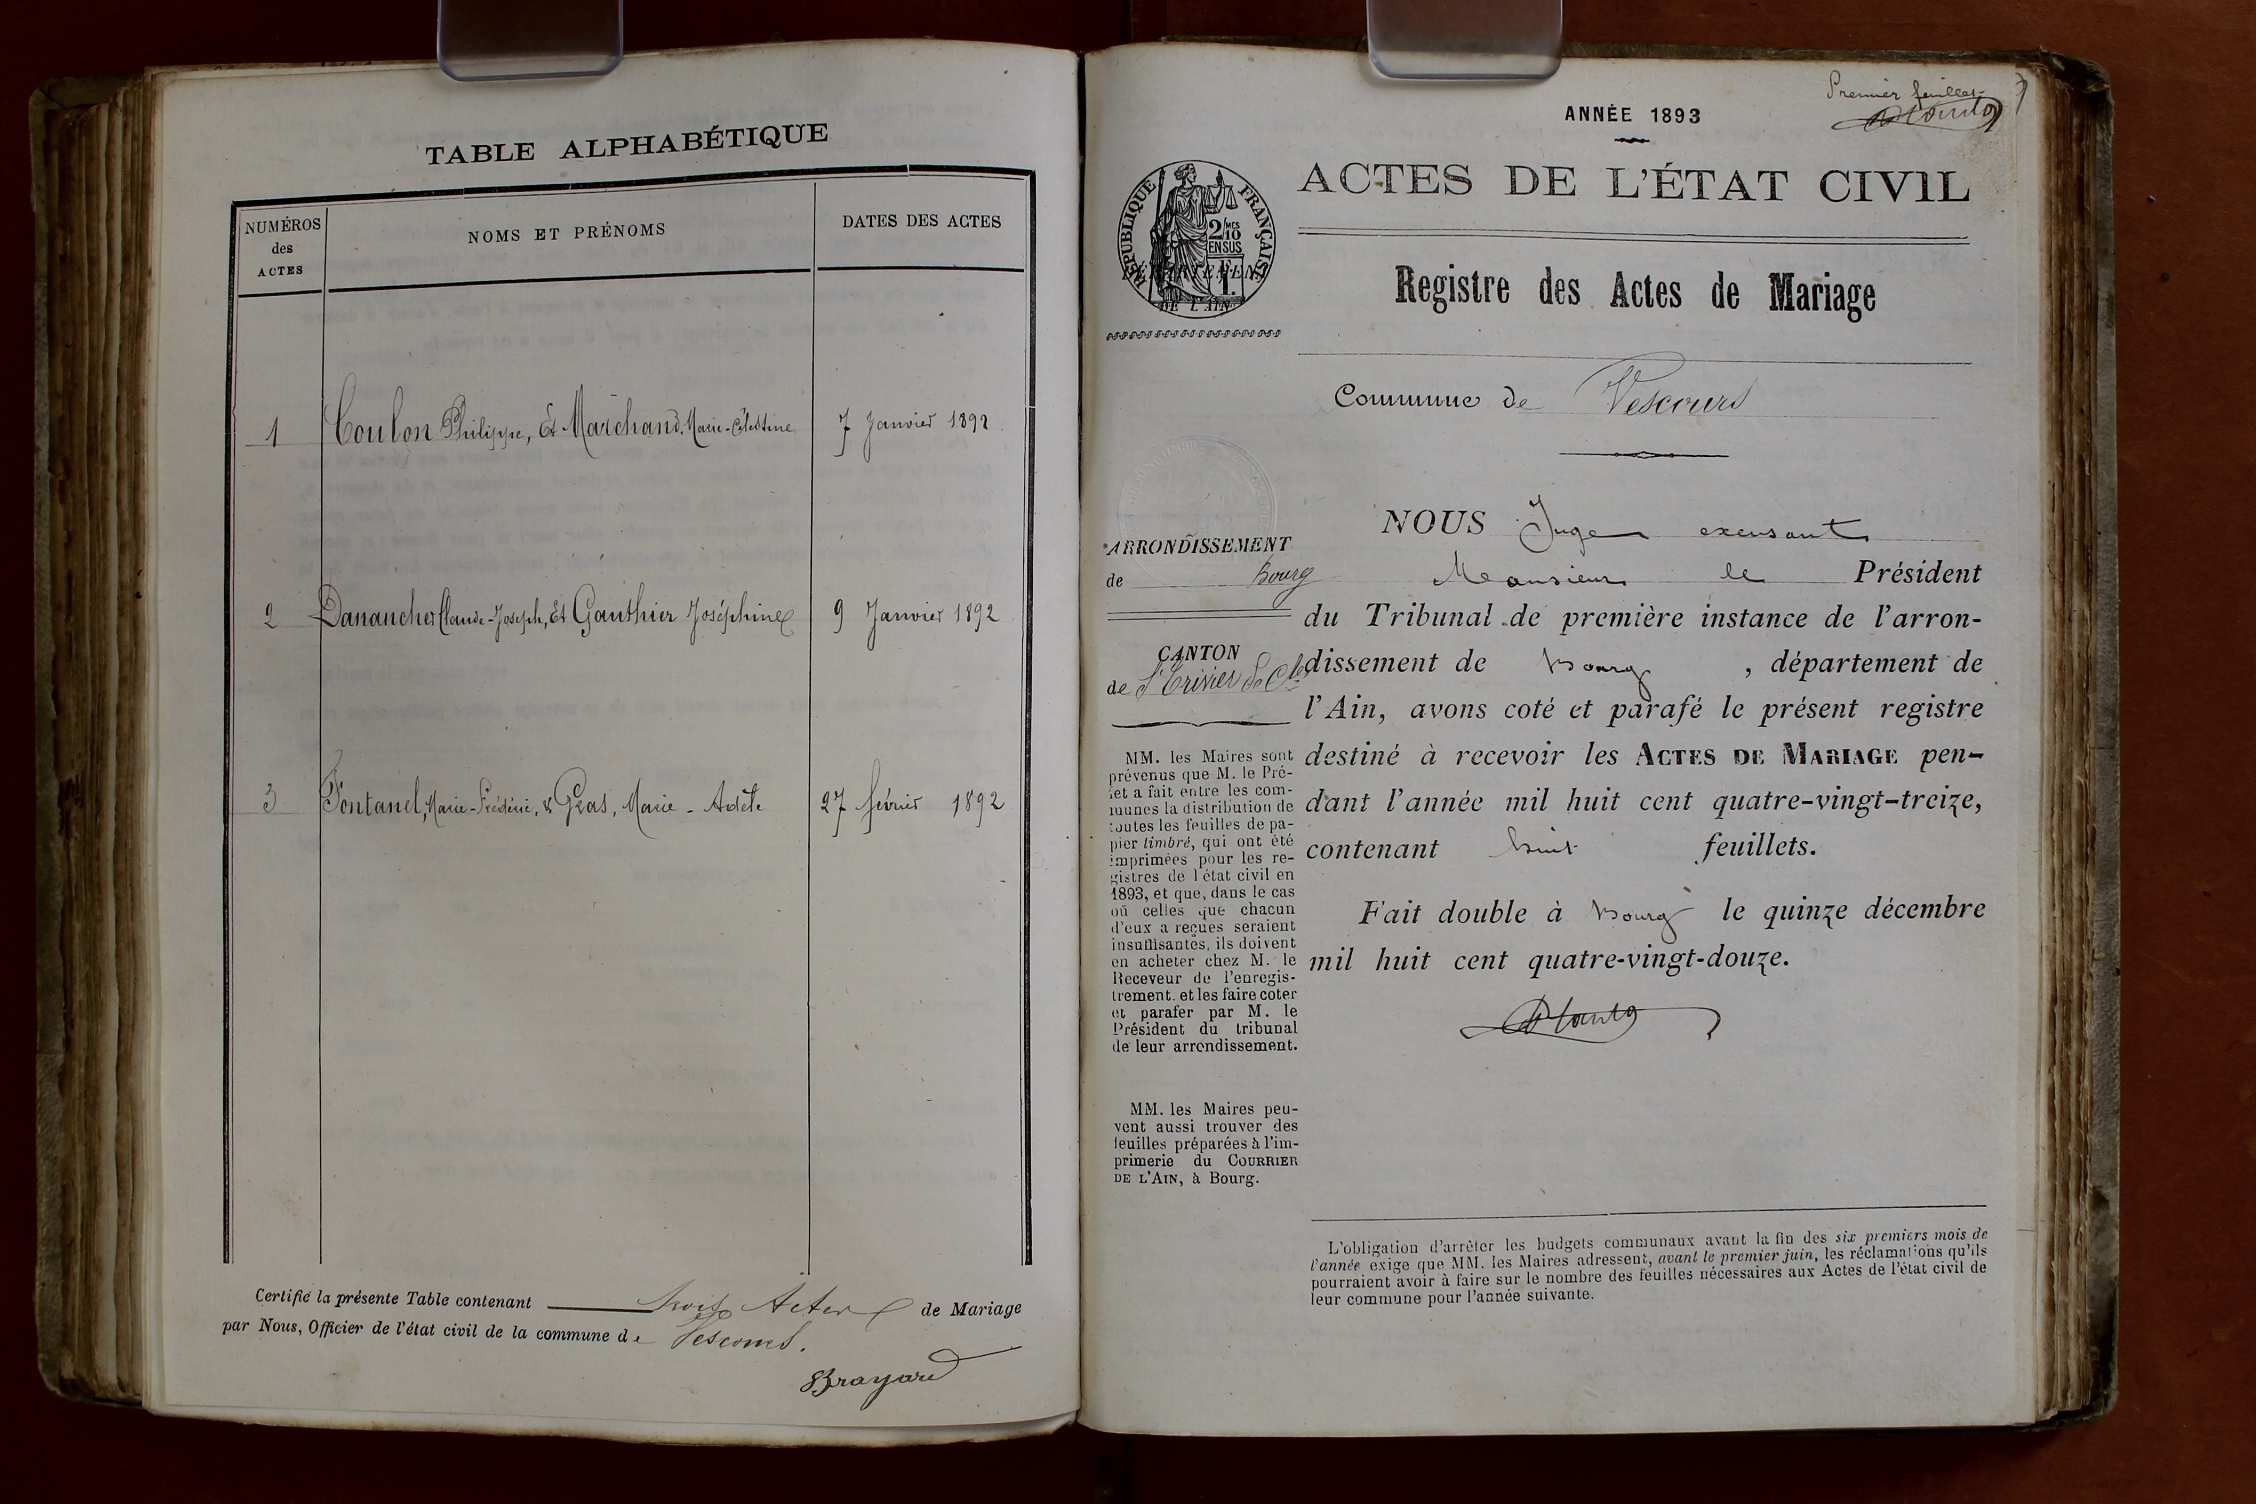 TABLE ALPHABÉTIQUE
NUMÉROS
des
ACTES
NOMS ET PRÉNOMS
DATES DES ACTES
1 Coulon Philippe, Et Marchand, Marie-Célestine 7 Janvier 1892
2 Danancher Claude-Joseph, Et Gauthier Joséphine 9 Janvier 1892
3 Fontanel, Marie-Frédéric, & Gras, Marie-Adèle 27 février 1892
Certifié la présente Table contenant trois Actes de Mariage
par Nous, Officier de l'état civil de la commune de Vescours.
Brayard
Premier feuillet
ANNÉE 1893
RÉPUBLIQUE FRANÇAISE
2/10 MES
EN SUS
1F.
DÉPARTEMENT
DE L'AIN
ACTES DE L'ÉTAT CIVIL
Registre des Actes de Mariage
Commune de Vescours
ARRONDISSEMENT
de Bourg
CANTON
de St Trivier de Ctes
MM. les Maires sont
prévenus que M. le Pré-
fet a fait entre les com-
munes la distribution de
toutes les feuilles de pa-
pier timbré, qui ont été
imprimées pour les re-
gistres de l'état civil en
1893, et que, dans le cas
où celles que chacun
d'eux a reçues seraient
insuffisantes, ils doivent
en acheter chez M. le
Receveur de l'enregis-
trement. et les faire coter
et parafer par M. le
Président du tribunal
de leur arrondissement.
MM. les Maires peu-
vent aussi trouver des
feuilles préparées à l'im-
primerie du COURRIER
DE L'AIN, à Bourg.
NOUS Juge excusant
Monsieur le Président
du Tribunal de première instance de l'arron-
dissement de Bourg, département de
l'Ain, avons coté et parafé le présent registre
destiné à recevoir les ACTES DE MARIAGE pen-
dant l'année mil huit cent quatre-vingt-treize,
contenant huit feuillets.
Fait double à Bourg le quinze décembre
mil huit cent quatre-vingt-douze.
L'obligation d'arrêter les budgets communaux avant la fin des six premiers mois de
l'année exige que MM. les Maires adressent, avant le premier juin, les réclamations qu'ils
pourraient avoir à faire sur le nombre des feuilles nécessaires aux Actes de l'état civil de
leur commune pour l'année suivante.